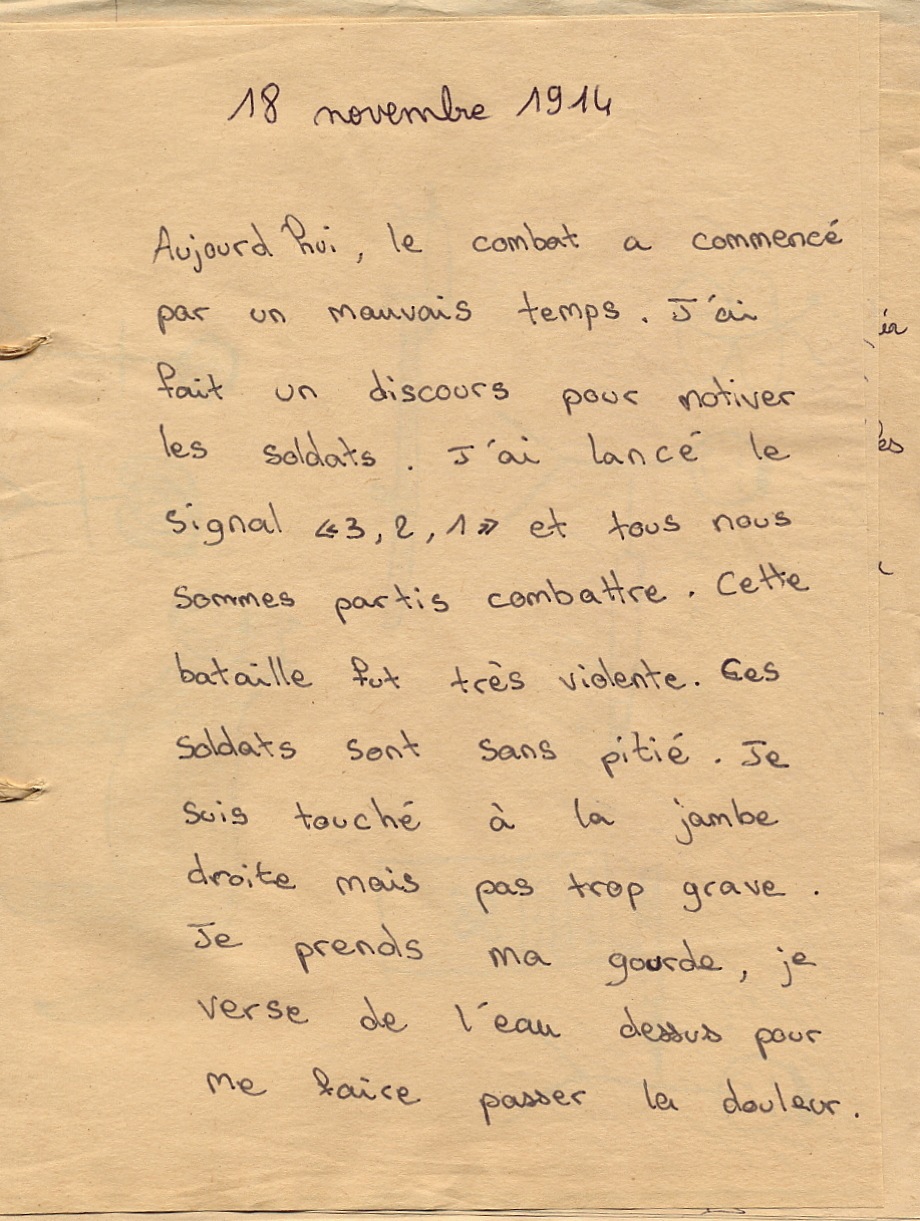 18 novembre 1914
Aujourd'hui, le combat a commencé
par un mauvais temps. J'ai
fait un discours pour motiver
les soldats. J'ai lancé le
signal «3, 2, 1» et tous nous
sommes partis combattre. Cette
bataille fut très violente. Ces
soldats sont sans pitié. Je
suis touché à la jambe
droite mais pas trop grave.
Je prends ma gourde, je
verse de l'eau dessus pour
me faire passer la douleur.